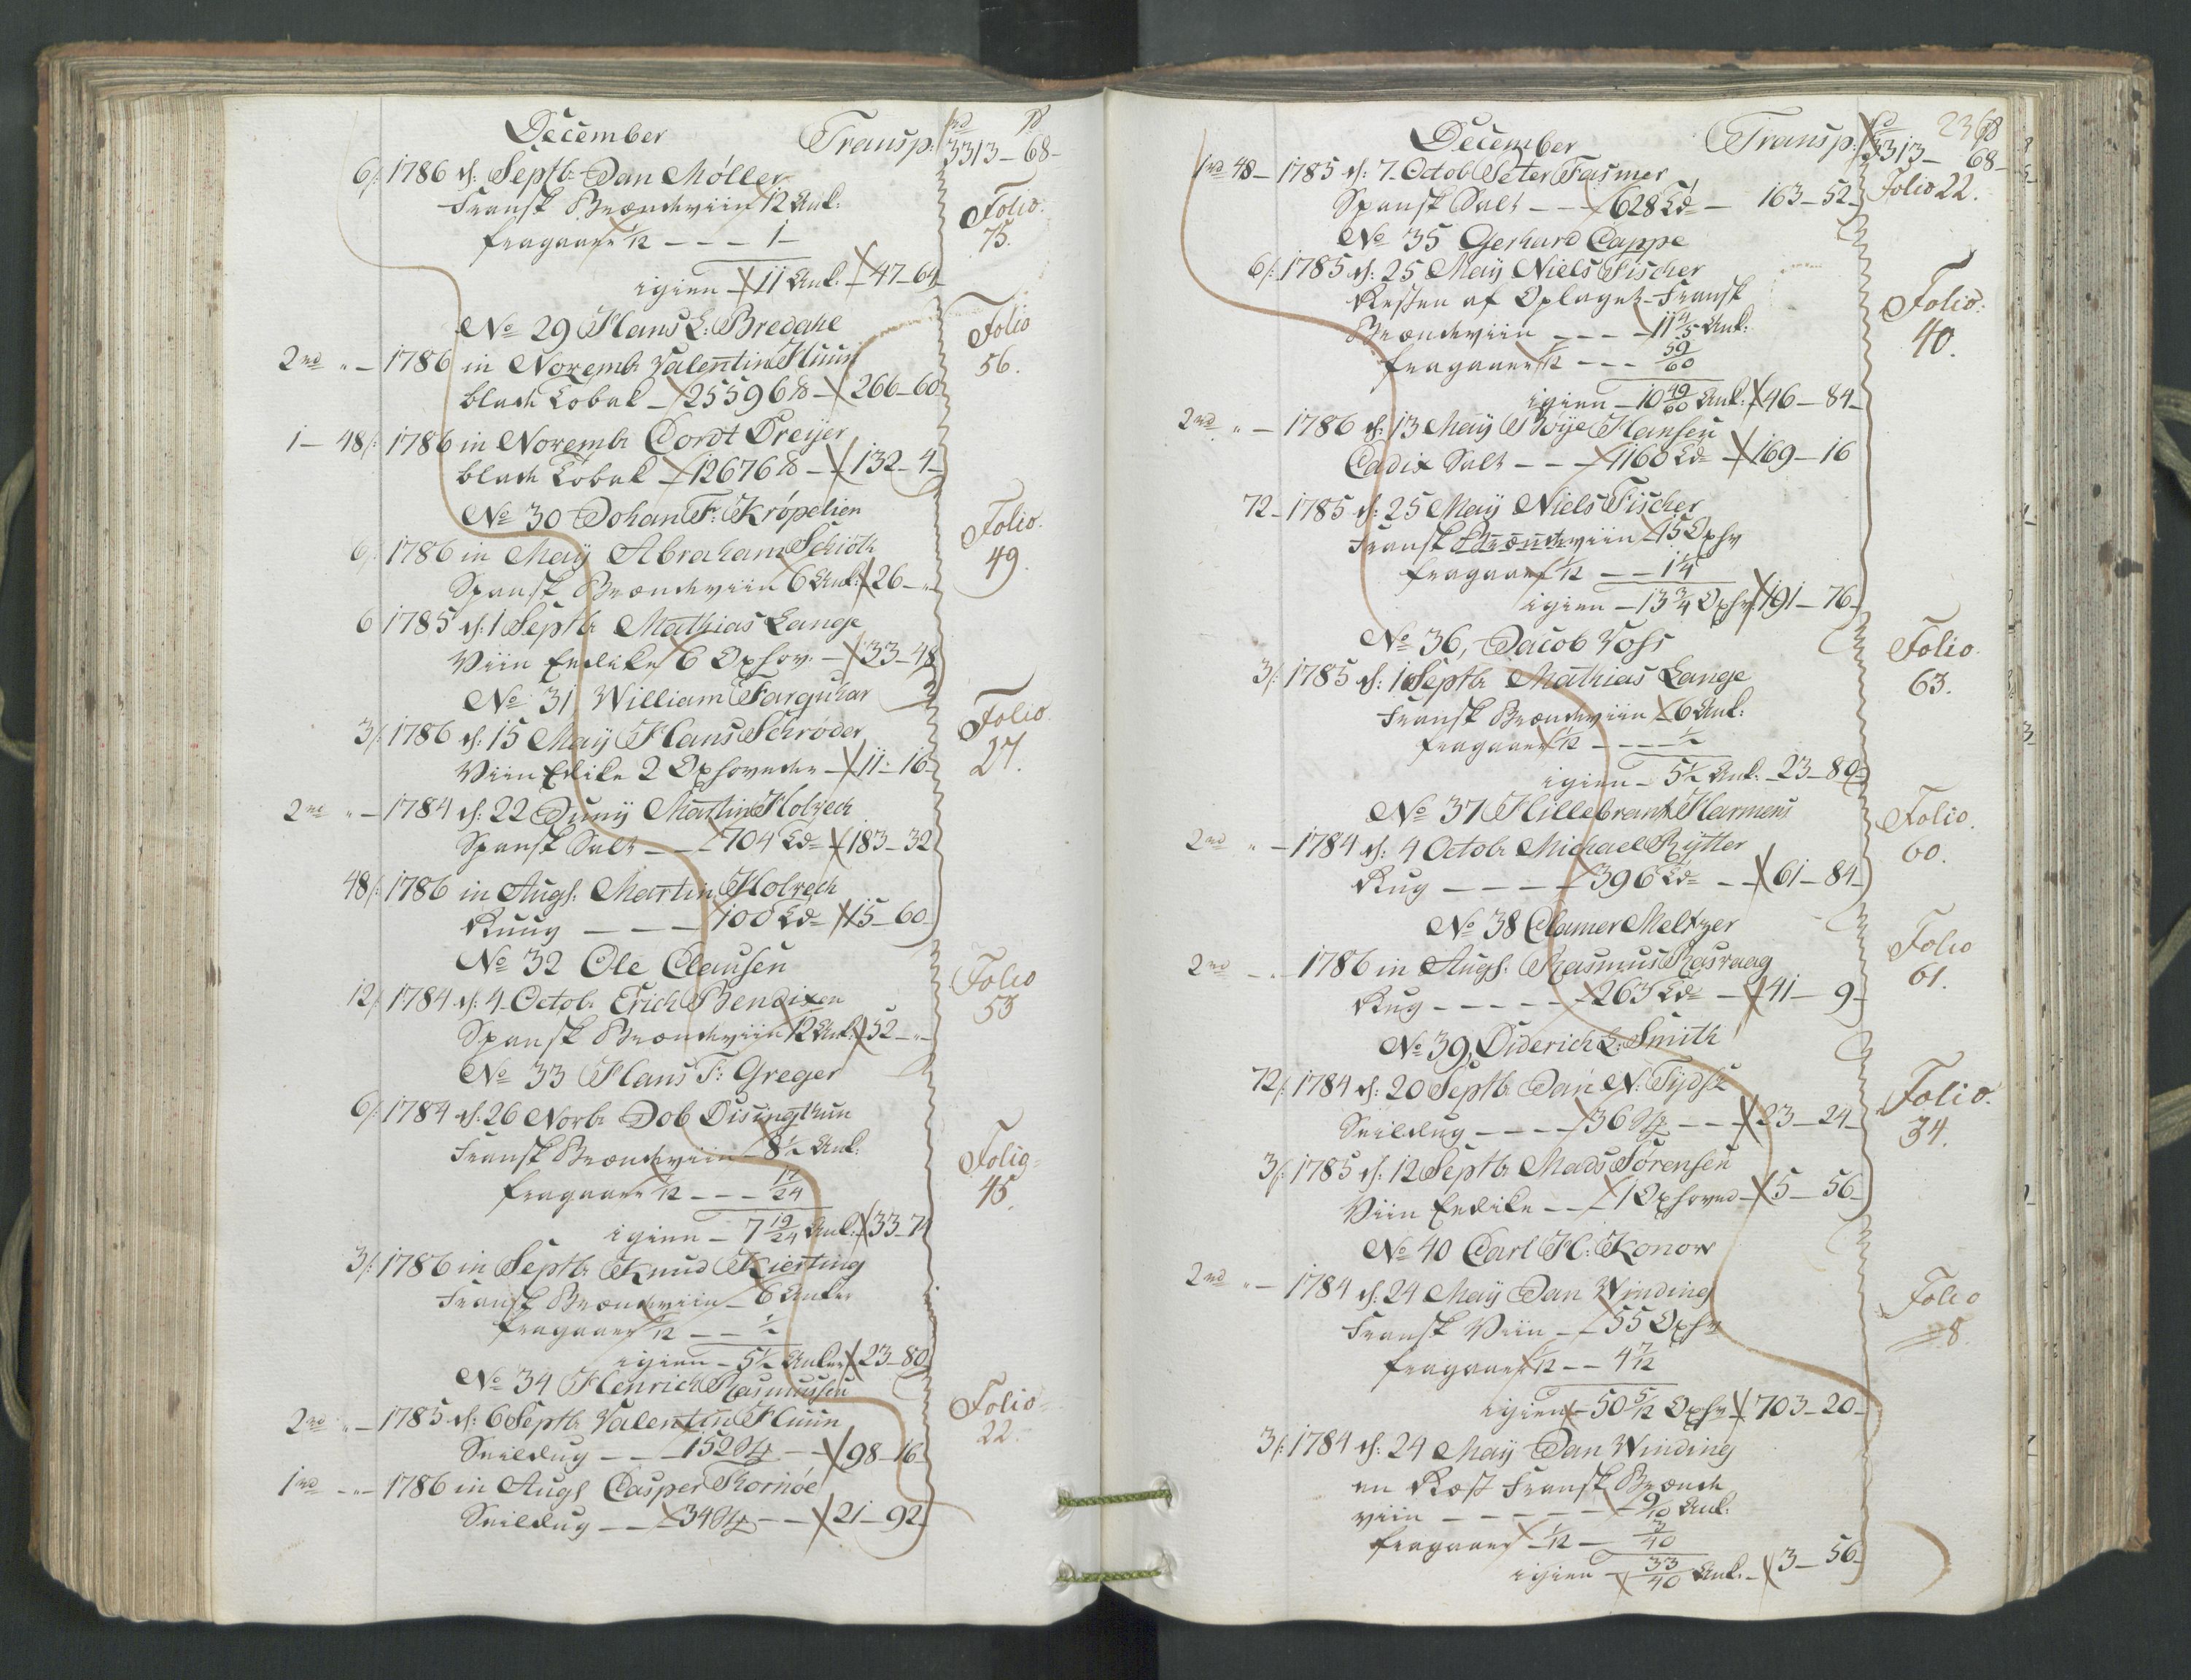 December Transp: rd ß
3313-68-
6ß 1786 d: Septb: Dan Møller
Fransk Brændeviin 12 Ank:
Folio.
75.
fragaaer 1/12 - - - 1 -
igien - 11 Ank: - 47-64
No 29 Hans L: Bredahl
Folio
56.
2rd " - 1786 in Novemb: Valentin Huun
blade Tobak - 25596 ℔ - 266-60
1 - 48ß 1786 in Novemb: Cordt Dreyer
blade Tobak - 12676 ℔ - 132-4-
No 30 Johan F: Krøpelien
Folio.
49.
6ß 1786 in Maÿ Abraham Schiøth
Spansk Brændeviin 6 Ank: 26-"-
6 1785 d: 1 Septb: Mathias Lange
Viin Eedike 6 Oxhov: - 33-48
No 31 William Farquhar
Folio.
27.
3ß 1786 d: 15 Maÿ Hans Schrøder
Viin Edike 2 Oxhoveder - 11-16
2rd " - 1784 d: 22 Junÿ Martin Holvech
Spansk Salt - - - 704 Td - 183-32
48ß 1786 in Augs: Martin Holvech
Ruug - - - 100 Td - 15-60
No 32 Ole Clausen
Folio
53
12ß 1784 d: 4 Octob: Erich Bendixen
Spansk Brændeviin 12 Ank: 52-"-
No 33 Hans F: Greger
6ß 1784 d: 26 Novb: Job Disingthun
Folio
45.
Fransk Brændeviin - 8 1/2 Ank:
fragaaer 1/12 - - - 17/24
igien - 7 19/24 Ank: 33-74
3ß 1786 in Septb: Knud Kierting
Fransk Brændeviin - 6 Anker
fragaaer 1/12 - - 1/2
igien - 5 1/2 Anker 23-80
No 34 Henrich Rasmussen
Folio
22.
2rd " - 1785 d: 6 Septb: Valentin Huun
Seildug - - - 152 - - 98-16
1rd - " - 1786 in Augs Casper Kornøe
Seildug - - - 34 - - 21-92
236
December Transp: rd ß
3313-68-
1rd 48 - 1785 d: 7 Octob Peter Fasmer
Spansk Salt - - - 628 Td - 163-52 Folio 22.
No 35 Gerhard Cappe
6ß 1785 d: 25 Maÿ Niels Fischer
Folio.
40.
Resten af Oplaget Fransk
Brændeviin - - - 11 4/5 Ank:
fragaaer 1/12 - - - 59/60
igien - 10 49/60 Ank: 46-84
2rd " - 1786 d: 13 Maÿ Bøÿe Hansen
Cadix Salt - - - 1160 Td - 169-16
72 - 1785 d: 25 Maÿ Niels Fischer
Fransk Brændeviin - 15 Oxhv
fragaaer 1/12 - - 1 1/4
igien - 13 3/4 Oxhv 191-76
No 36, Jacob Vohs
Folio.
63.
3ß 1785 d: 1 Septb: Mathias Lange
Fransk Brændeviin - 6 Ank:
fragaaer 1/12 - - - 1/2
igien - 5 1/2 Ank: 23-80
No 37 Hillebrant Harmens
Folio.
60.
2rd " - 1784 d: 4 Octob: Michael Rÿtter
Rug - - - - 396 Td - - 61-84
No 38 Clamer Meltzer
Folio
61.
2rd - " - 1786 in Augs: Rasmus Rasvaag
Rug - - - - - 263 Td - 41-9
No 39, Diderich L: Smith
72ß 1784 d: 20 Septb: Jan N: Tÿdsk
Folio.
34.
Seildug - - - - 36 - - 23-24
3ß 1785 d: 12 Septb: Mads Sørensen
Viin Eedike - - 1 Oxhoved - 5-56
No 40 Carl H: Konow
2rd " - 1784 d: 24 Maÿ Dan Winding
Folio
8.
Fransk Viin - - 55 Oxhv
fragaaer 1/12 - - 4 7/12
igien - 50 5/12 Oxhv - 703-20
3ß 1784 d: 24 Maÿ Dan Winding
en Rest Fransk Brænde
viin - - - - - 9/10 Ank:
fragaaer - 1/12 - 3/40
igien - 33/40 Ank: - 3-56